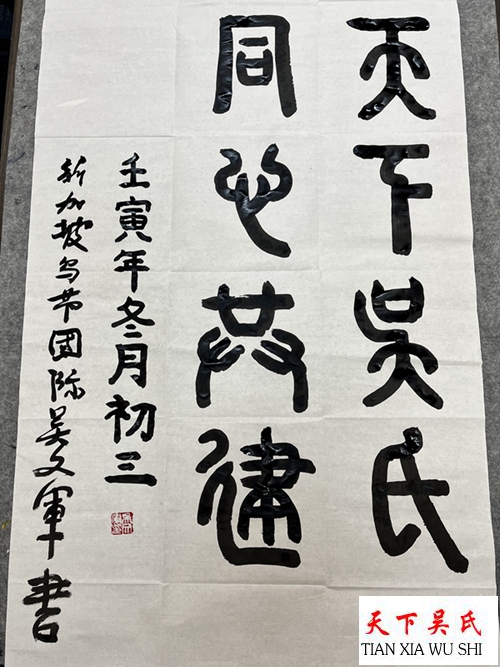 天下吴氏
同心共建
壬寅年冬月初三
新加坡乌节国际吴文军书
天下吴氏
TIAN XIA WU SHI